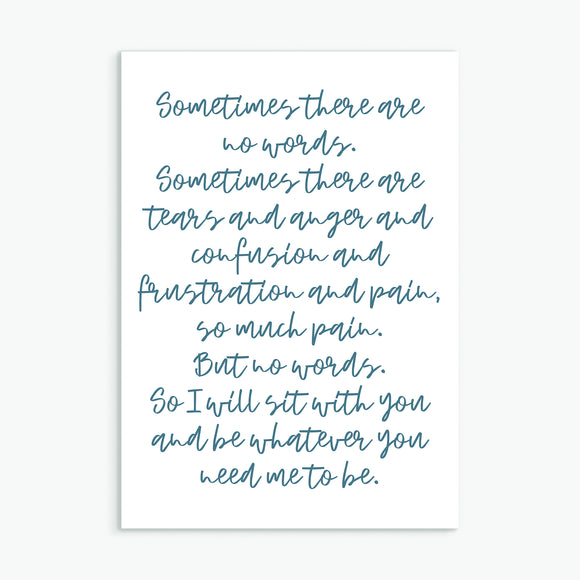 Sometimes there are
no words.
Sometimes there are
tears and anger and
confusion and
frustration and pain,
so much pain.
But no words.
So I will sit with you
and be whatever you
need me to be.